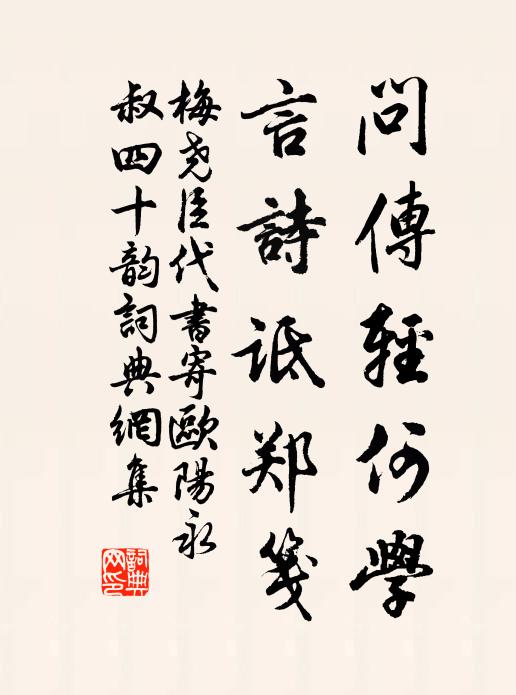 問傳輕何學
言詩诋郑箋
梅尧臣代書寄歐陽永
叔四十韵詞典網集
詞典
网印